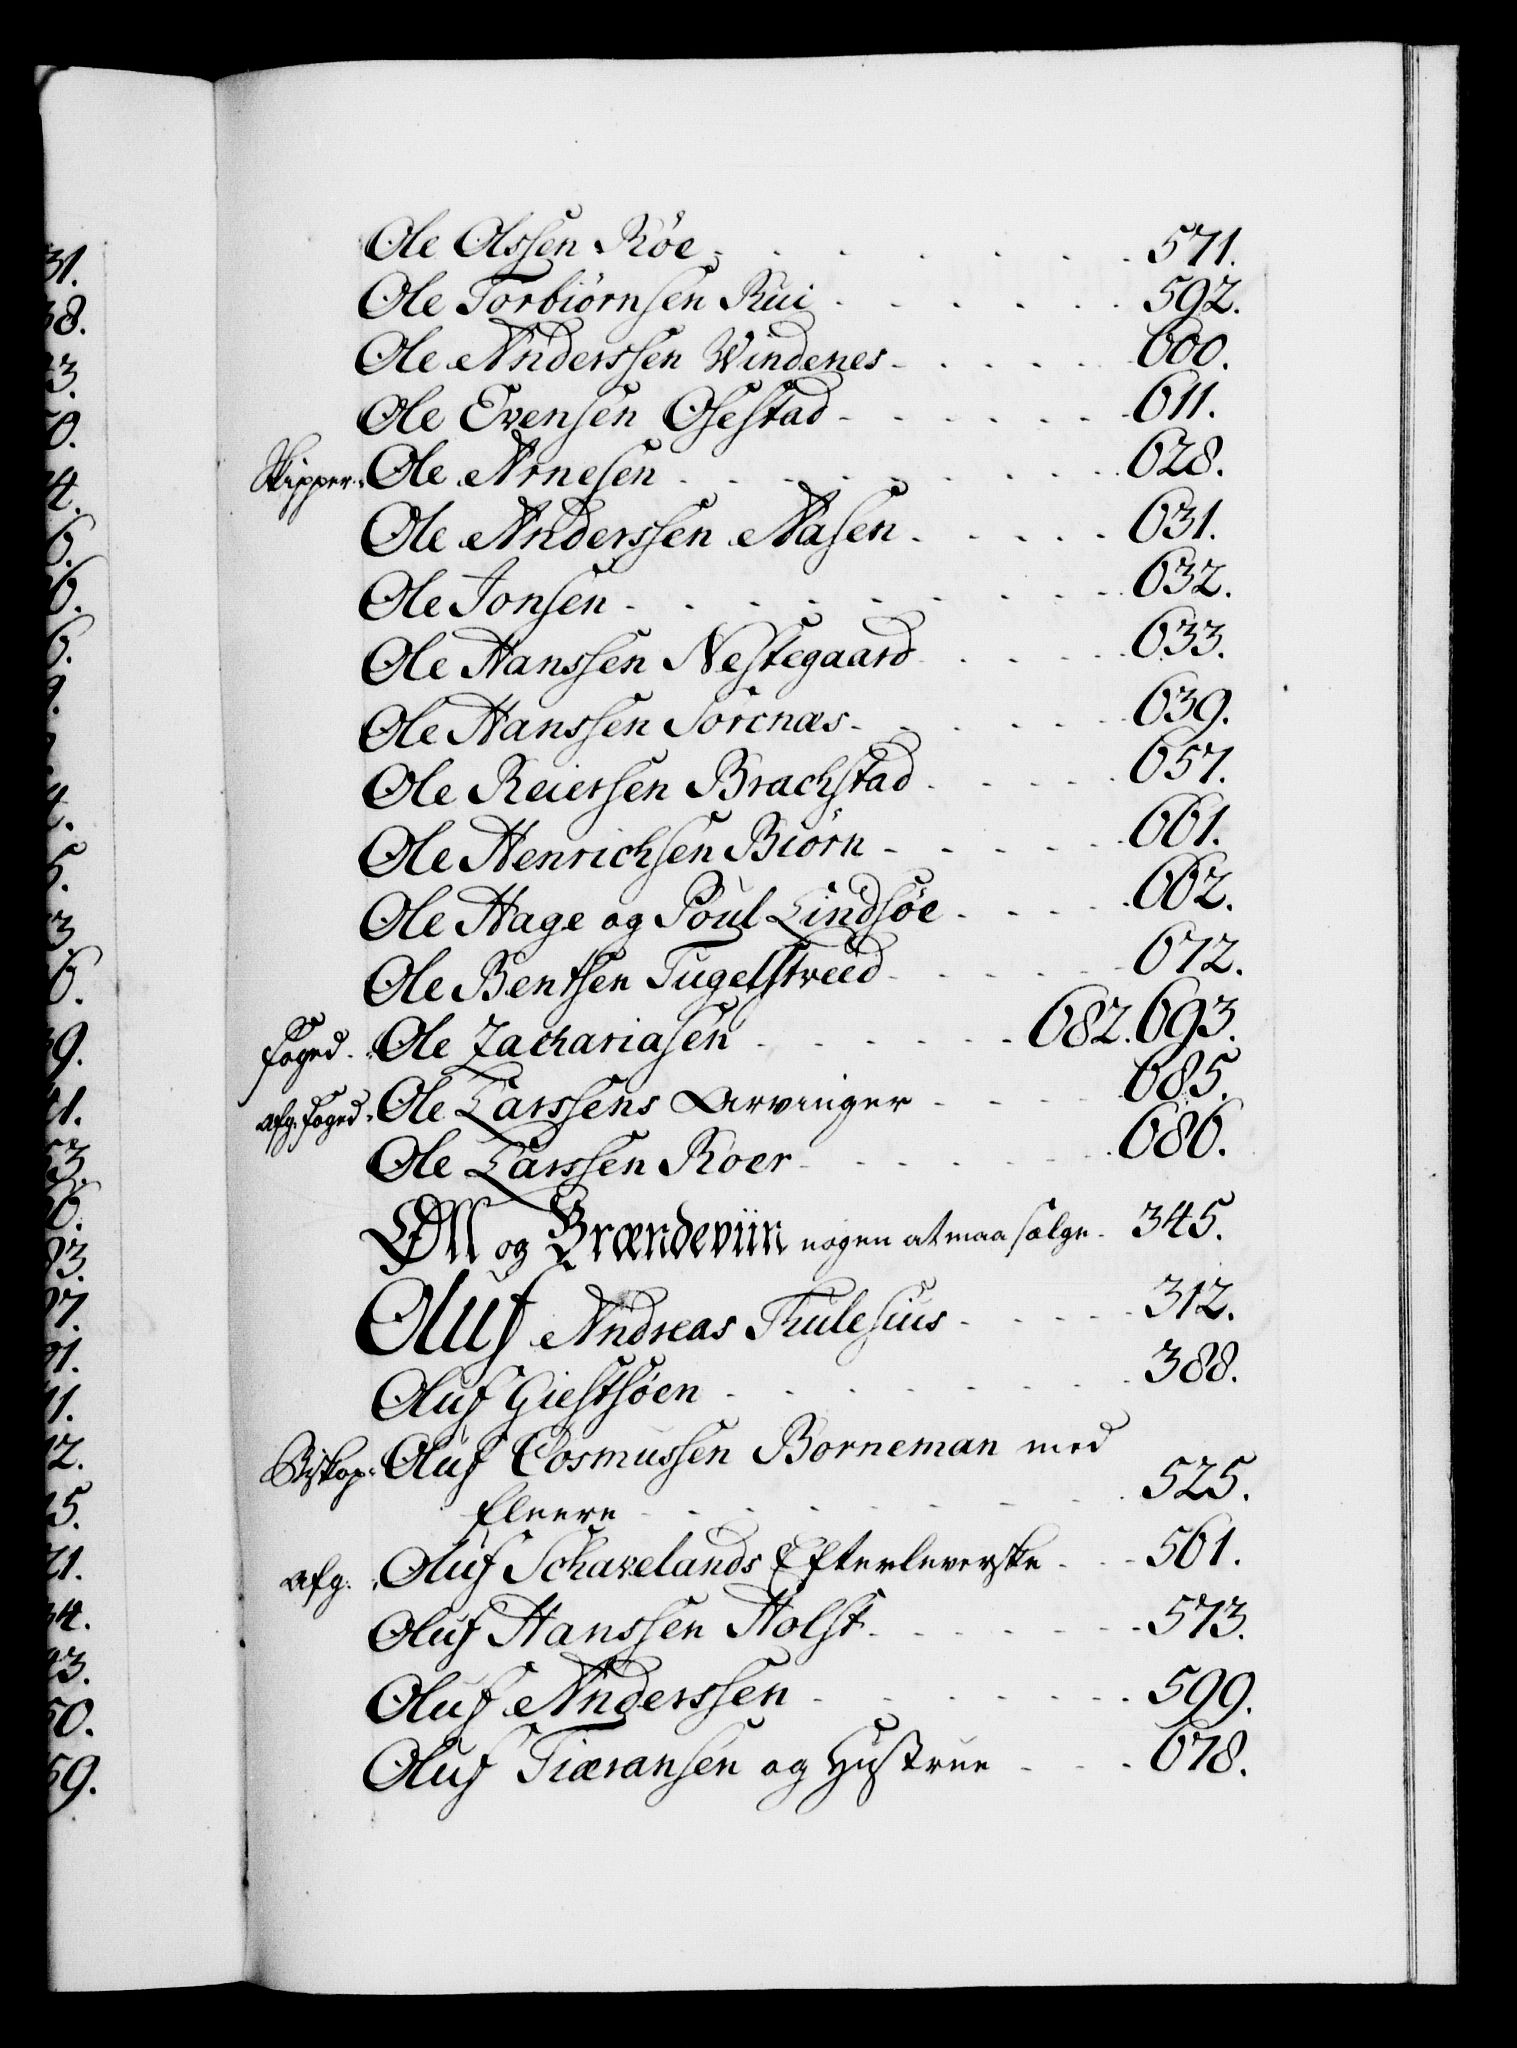 Ole Olssen Röe 571.
Ole Torbiörnsen Rui 592.
Ole Anderssen Windenes 600.
Ole Evensen Osestad 611.
Skipper. Ole Arnesen 628.
Ole Anderssen Aasen 631.
Ole Jonsen 632.
Ole Hanssen Nestegaard 633.
Ole Hanssen Sörenæs 639.
Ole Reiersen Brachstad 657.
Ole Henrichsen Biörn 661.
Ole Hage og Poul Lindsöe 662.
Ole Bentsen Fugelstveed 672.
Foged. Ole Zachariasen 682. 693.
afg. Foged. Ole Larssens Arvinger 685.
Ole Larssen Roer 686.
Øll og Brændeviin nogen at maa sælge 345.
Oluf Andreas Thulesius 312.
Oluf Giestsöen 388.
Biskop. Oluf Cosmussen Borneman med
fleere 525.
afg. Oluf Schavelands Efterleverske 561.
Oluf Hanssen Holst 573.
Oluf Anderssen 599.
Oluf Tiæransen og Hustrue 678.